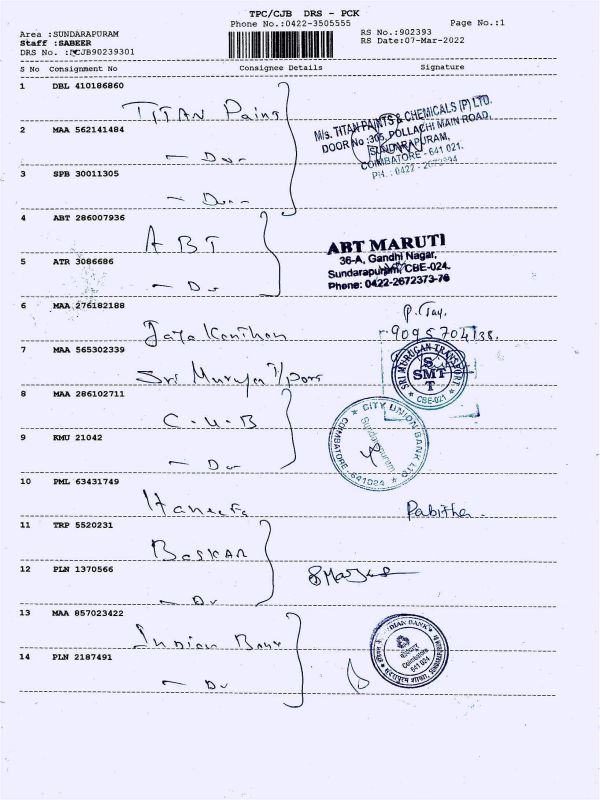 TPC/CJB DRS - PCK
Phone No.:0422-3505555 Page No.:1
Area :SUNDARAPURAM RS No.:902393
Staff :SABEER RS Date:07-Mar-2022
DRS No. :CJB90239301
S No Consignment No Consignee Details Signature
1 DBL 410186860
TITAN Pains
M/s. TITAN PAINTS & CHEMICALS (P) LTD.
DOOR No :305, POLLACHI MAIN ROAD,
SUNDARAPURAM,
COIMBATORE - 641 021.
PH. : 0422 - 2672394
2 MAA 562141484
— Do —
3 SPB 30011305
— Do —
4 ABT 286007936
ABT
ABT MARUTI
36-A, Gandhi Nagar,
Sundarapuram, CBE-024.
Phone: 0422-2672373-76
5 ATR 3086686
— Do
6 MAA 276182188
Jaya Kanthan
P. Jay.
9095704138.
7 MAA 565302339
Sri Murugan T/port
SRI MURUGAN TRANSPORT
SMT
CBE-021
8 MAA 286102711
C.U.B
CITY UNION BANK LTD
Sundarapuram
COIMBATORE - 641024
9 KMU 21042
— Do
10 PML 63431749
Haneefa
Pabitha.
11 TRP 5520231
BASKAR
12 PLN 1370566
— Do
13 MAA 857023422
Indian Bank
INDIAN BANK
Coimbatore
641 024
14 PLN 2187491
— Do